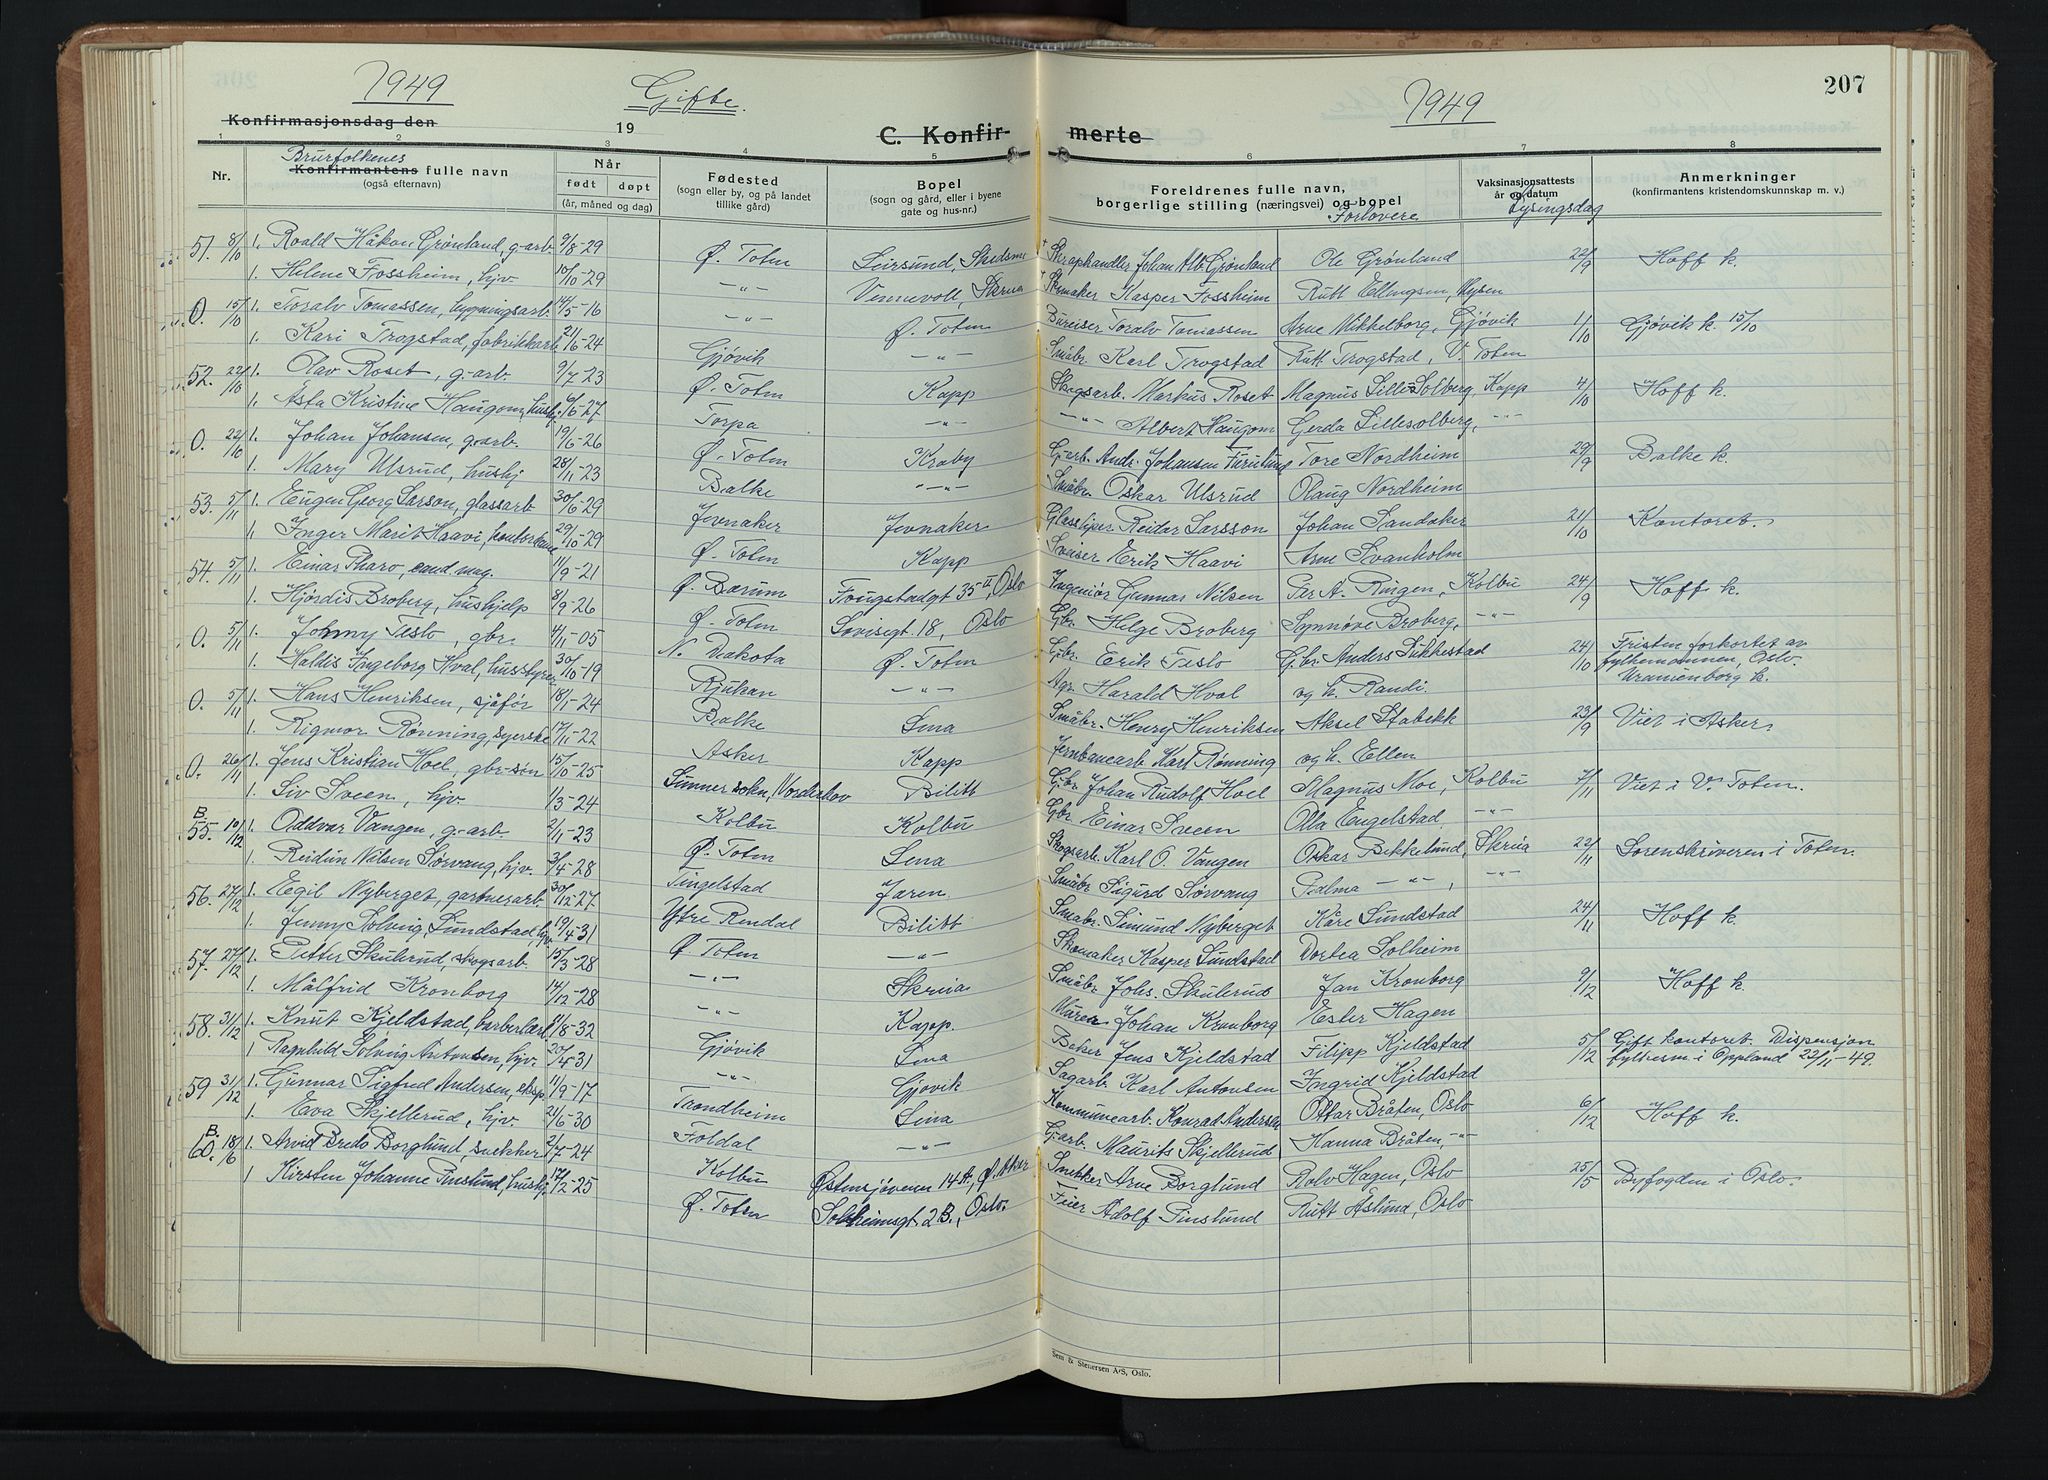 1949
Gifte.
1949
207
Konfirmasjonsdag den 19
C. Konfirmerte
1 2 3 4 5 6 7 8
Nr.
Brurfolkenes
Konfirmantens fulle navn
(også efternavn)
Når
født døpt
(år, måned og dag)
Fødested
(sogn eller by, og på landet
tillike gård)
Bopel
(sogn og gård, eller i byene
gate og hus-nr.)
Foreldrenes fulle navn,
borgerlige stilling (næringsvei) og bopel
Forlovere
Vaksinasjonsattests
år og datum
Lysingsdag
Anmerkninger
(konfirmantens kristendomskunnskap m. v.)
51. 8/10 1. Roald Håkon Grønland, g-arb. 9/8-29 Ø. Toten Leirsund, Skedsmo † Skraphandler Johan Alb. Grønland Ole Grønland 22/9 Hoff k.
1. Helene Fossheim, hjv. 10/10-29 -"- Vennevoll, Skreia † Skomaker Kasper Fossheim Rutt Ellingsen, Mysen
O. 15/10 1. Toralv Tomassen, bygningsarb. 14/5-16 -"- Ø. Toten Bureiser Toralv Tomassen Arne Mikkelborg, Gjøvik 1/10 Gjøvik k. 15/10
1. Kari Trogstad, fabrikkarb. 21/6-24 Gjøvik -"- Småbr. Karl Trogstad Rutt Trogstad, V. Toten
52. 22/10 1. Olav Roset, g-arb. 9/7-23 Ø. Toten Kapp Skogsarb. Markus Roset Magnus Lille-Solberg, Kapp 4/10 Hoff k.
1. Asta Kristine Haugom, hushj. 6/6-27 Torpa -"- -"- Albert Haugom Gerda Lillesolberg, -"-
O. 22/10 1. Johan Johansen, g-arb. 19/6-26 Ø. Toten Kraby G-arb. Andr. Johansen Furulund Tore Nordheim 29/9 Balke k.
1. Mary Ulsrud, hushj. 28/11-23 Balke -"- Småbr. Oskar Ulsrud Olaug Nordheim
53. 5/11 1. Eugen Georg Larsson, glassarb. 30/6-29 Jevnaker Jevnaker Glassliper Reidar Larsson Johan Sandaker 21/10 Kontoret.
1. Inger Marit Haavi, kontordame 29/10-29 Ø. Toten Kapp Sveiser Erik Haavi Arne Svanholm
54. 5/11 1. Einar Pharo, cand. mag. 11/9-21 Ø. Bærum Fougstadgt 35 II, Oslo Ingeniør Gunnar Nilsen Per A. Ringen, Kolbu 24/9 Hoff k.
1. Hjørdis Broberg, hushjelp 8/9-26 Ø. Toten Lovisegt. 18, Oslo Gbr. Helge Broberg Synnøve Broberg, -"-
O. 5/11 1. Johny Teslo, gbr. 4/11-05 N. Dakota Ø. Toten Gbr. Erik Teslo Gbr. Anders Lukkestad 24/10 Fristen forkortet av
fylkesmannen, Oslo.
Uranienborg k.
1. Haldis Ingeborg Hval, husstyrer 30/10-19 Rjukan -"- Agr. Harald Hval og h. Randi.
O. 5/11 1. Hans Henriksen, sjåfør 18/1-24 Balke Lena Småbr. Henry Henriksen Aksel Stabekk 23/9 Viet i Asker.
1. Rigmor Rønning, syerske 17/11-22 Asker Kapp Jernbanearb. Karl Rønning og h. Ellen
O. 26/11 1. Jens Kristian Hoel, gbr-søn 15/10-25 Sunner sokn, Norderhov Bilitt Gbr. Johan Rudolf Hoel Magnus Moe, Kolbu 7/11 Viet i V. Toten.
1. Liv Sveen, hjv. 1/3-24 Kolbu Kolbu Gbr. Einar Sveen Olla Engelstad -"-
B. 55. 10/12 1. Oddvar Vangen, g-arb. 2/11-23 Ø. Toten Lena Skogsarb. Karl O. Vangen Oskar Bekkelund, Skreia 22/11 Sorenskriveren i Toten.
1. Reidun Nilsen Sørvang, hjv. 3/4-28 Tingelstad Jaren Småbr. Sigurd Sørvang Palma -"-, -"-
56. 27/12 1. Egil Nyberget, gartnerarb. 30/12-27 Ytre Rendal Bilitt Småbr. Simund Nyberget Kåre Sundstad 24/11 Hoff k.
1. Jenny Solveig Sundstad, hjv. 19/4-31 Ø. Toten -"- Skomaker Kasper Sundstad Dortea Solheim
57. 27/12 1. Petter Skulerud, skogsarb. 15/3-28 -"- Skreia Småbr. Johs. Skulerud Jan Kronborg 9/12 Hoff k.
1. Målfrid Kronborg 14/12-28 -"- Kapp. Murer Johan Kronborg Ester Hagen
58. 31/12 1. Knut Kjeldstad, barberlærl. 11/8-32 Gjøvik Lena Baker Jens Kjeldstad Filipp Kjeldstad 5/12 Gift kontoret. Dispensjon
fylkesm. i Oppland 23/11-49.
1 Ragnhild Solveig Antonsen, hjv. 20/4-31 -"- Gjøvik Sagarb. Karl Antonsen Ingrid Kjeldstad
59 31/12 1. Gunnar Sigfred Andersen, eksp. 11/9-17 Trondheim Lena Kommunearb. Konrad Andersen Ottar Bråten, Oslo 6/12 Hoff k.
1. Eva Skjellerud, hjv. 21/6-30 Foldal -"- G-arb. Maurits Skjellerud Hanna Bråten, -"-
B. 60. 18/6 1. Arvid Breda Borglund, snekker 2/7-24 Kolbu Østensjøveien 14 A, Ø. Aker Snekker Arne Borglund Rolv Hagen, Oslo 25/5 Byfogden i Oslo.
1 Kirsten Johanne Pinslund, hushj. 17/2-25 Ø. Toten Solheimsgt 2 B., Oslo. Feier Adolf Pinslund Rutt Åslund, Oslo
Sem & Stenersen A/S, Oslo.